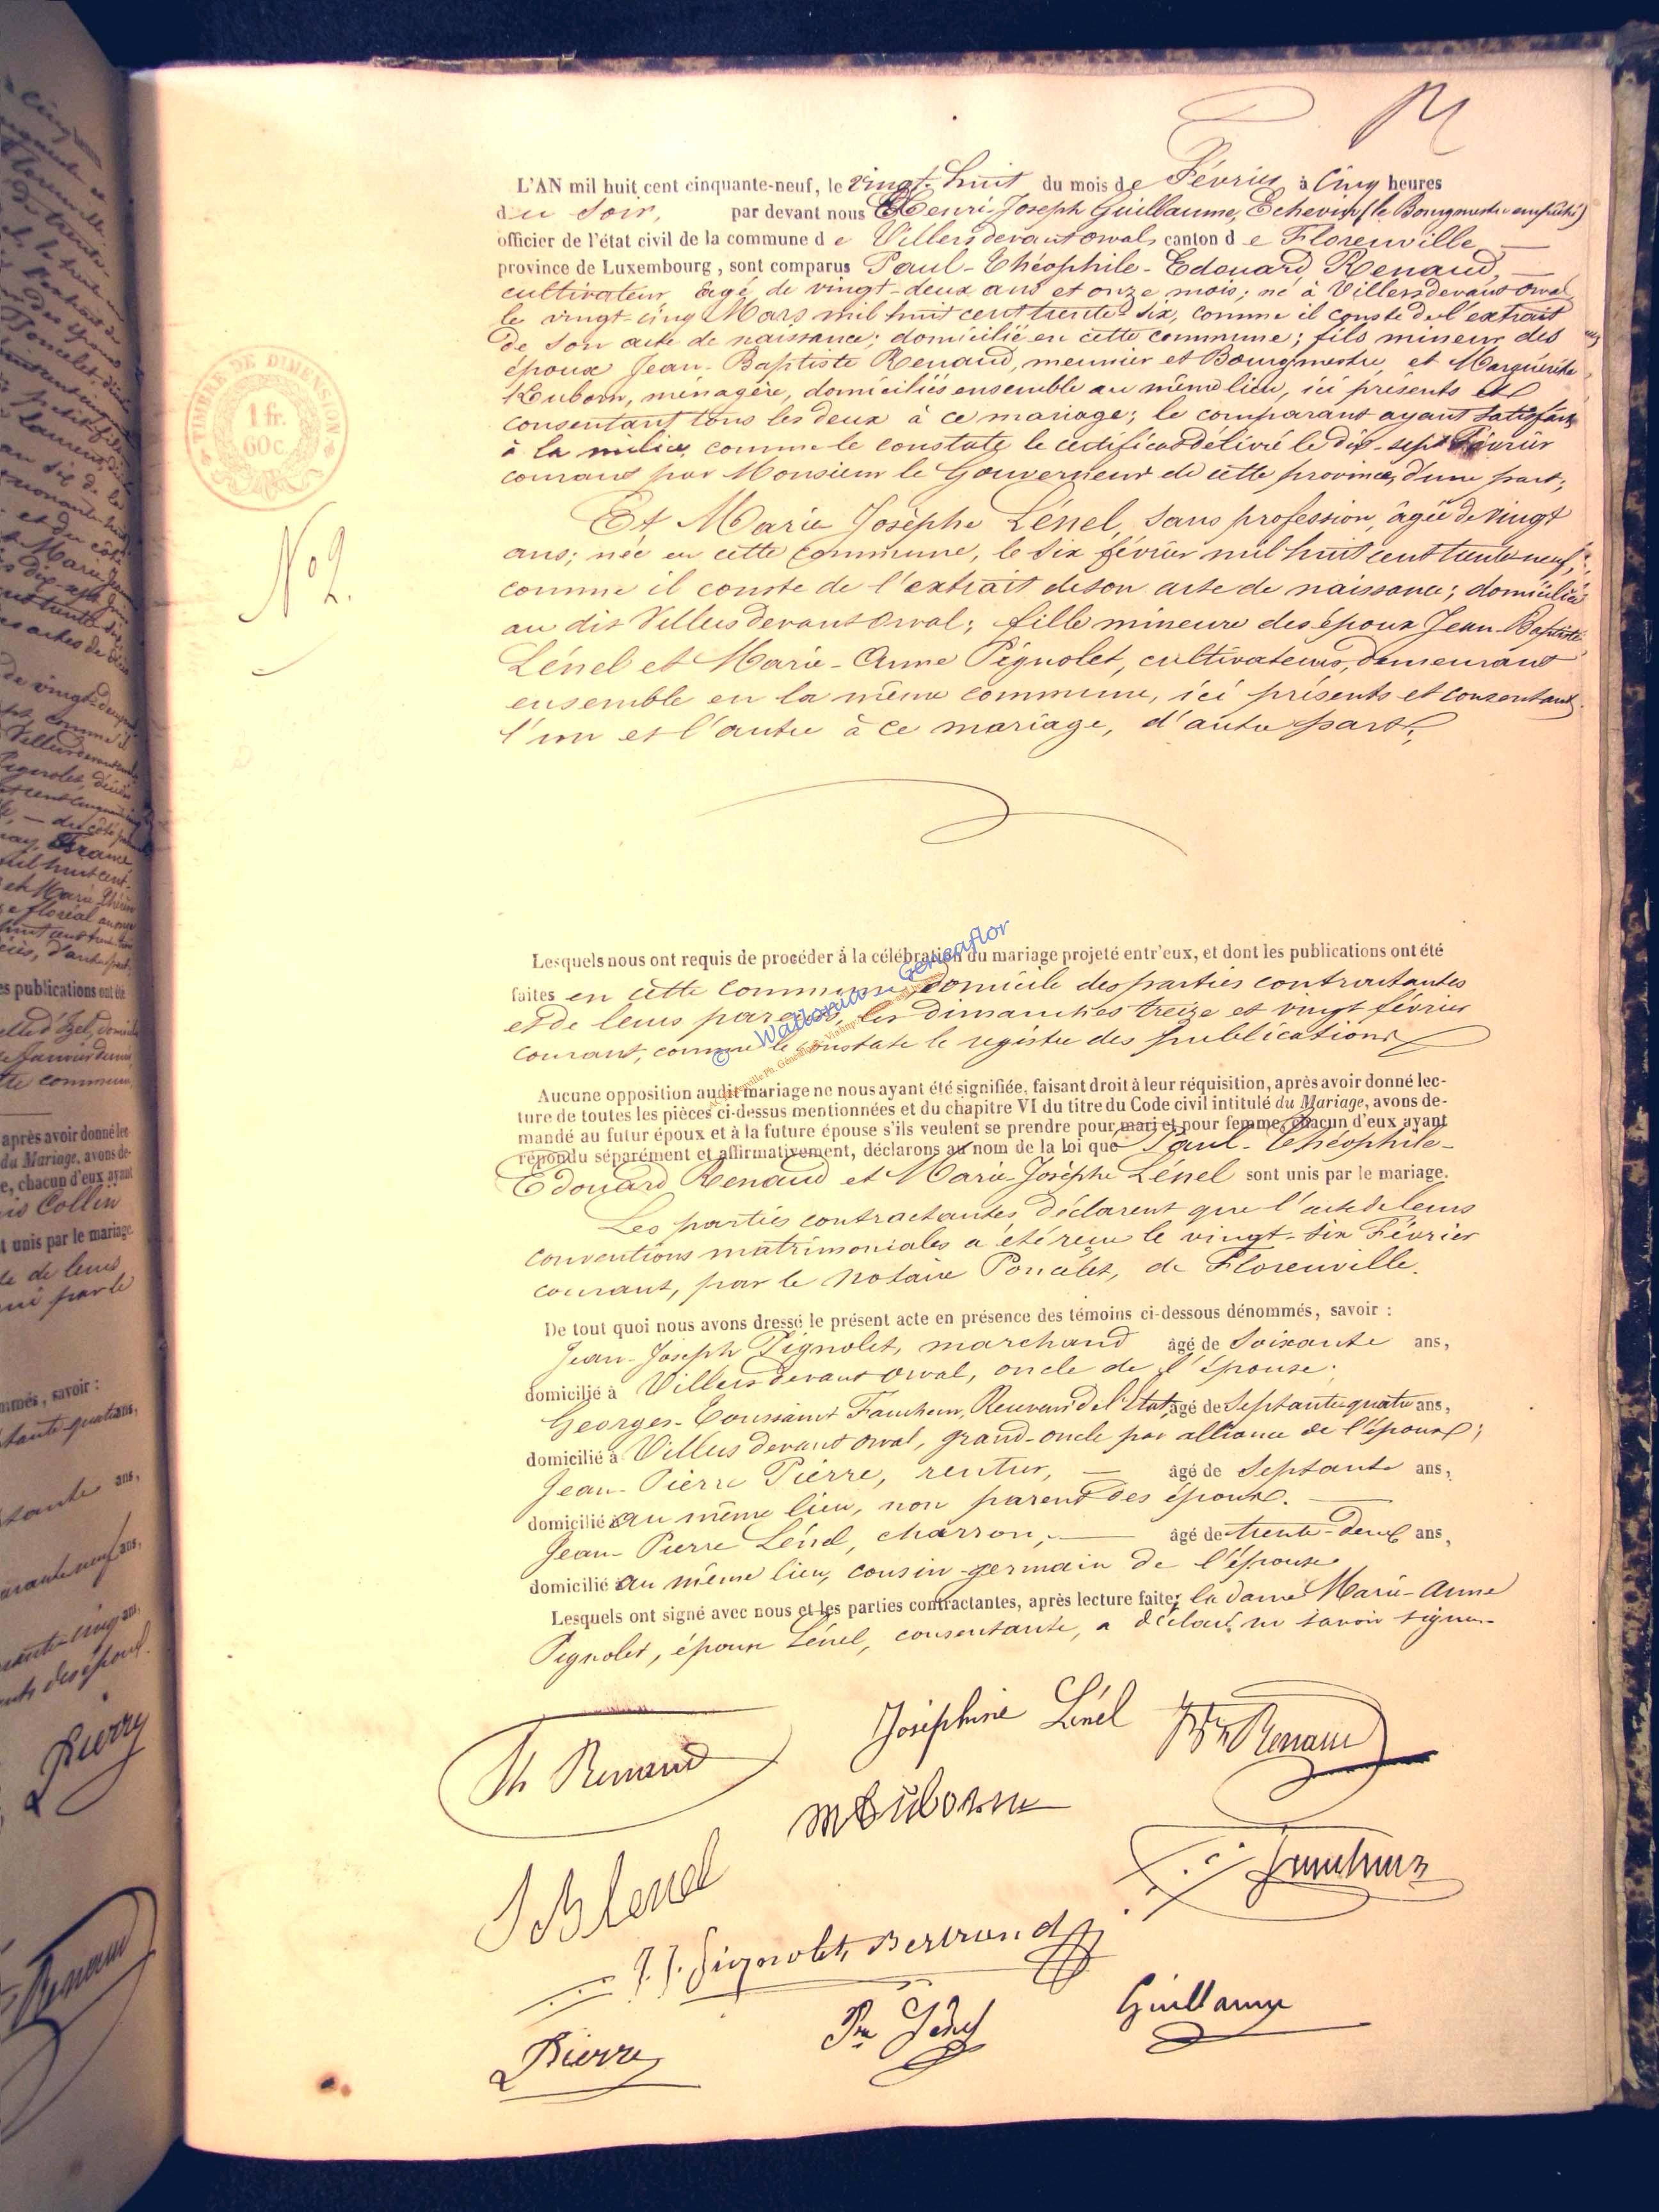 L'AN mil huit cent cinquante-neuf, le vingt-huit du mois de Février à Cinq heures
du soir, par devant nous Henri-Joseph Guillaume, Echevin (le Bourgmestre empêché)
officier de l'état civil de la commune de Villersdevantorval, canton de Florenville
province de Luxembourg, sont comparus Paul-Théophile-Edouard Renaud,
cultivateur, âgé de vingt-deux ans et onze mois; né à Villersdevantorval
le vingt-cinq Mars mil huit cent trente-six, comme il conste de l'extrait
de son acte de naissance; domicilié en cette commune; fils mineur des
époux Jean-Baptiste Renaud, meunier et Bourgmestre, et Marguérite
Kuborn, ménagère, domiciliés ensemble au même lieu, ici présents et
consentant tous les deux à ce mariage; le comparant ayant satisfait
à la milice comme le constate le certificat délivré le dix-sept Février
courant par Monsieur le Gouverneur de cette province, d'une part;
TIMBRE DE DIMENSION
1 fr.
60 c.
N° 2.
Et Marie Josèphe Lénel, sans profession, âgée de vingt
ans; née en cette commune, le six février mil huit cent trente neuf,
comme il conste de l'extrait de son acte de naissance; domiciliée
au dit Villersdevantorval; fille mineure des époux Jean-Baptiste
Lénel et Marie-Anne Pignolet, cultivateurs, demeurant
ensemble en la même commune, ici présents et consentant
l'un et l'autre à ce mariage, d'autre part;
Lesquels nous ont requis de procéder à la célébration du mariage projeté entr'eux, et dont les publications ont été
faites en cette commune domicile des parties contractantes
et de leurs parents, les dimanches treize et vingt février
courant, comme le constate le registre des publications
© Wallonia Geneaflor
Aucune opposition audit mariage ne nous ayant été signifiée, faisant droit à leur réquisition, après avoir donné lec-
ture de toutes les pièces ci-dessus mentionnées et du chapitre VI du titre du Code civil intitulé du Mariage, avons de-
mandé au futur époux et à la future épouse s'ils veulent se prendre pour mari et pour femme, chacun d'eux ayant
répondu séparément et affirmativement, déclarons au nom de la loi que Paul-Théophile-
Edouard Renaud et Marie Josèphe Lénel sont unis par le mariage.
Les parties contractantes déclarent que l'acte de leurs
conventions matrimoniales a été reçu le vingt-six Février
courant, par le notaire Poncelet, de Florenville.
De tout quoi nous avons dressé le présent acte en présence des témoins ci-dessous dénommés, savoir :
Jean-Joseph Pignolet, marchand âgé de Soixante ans,
domicilié à Villersdevantorval, oncle de l'épouse;
Georges-Toussaint Faucheur, Receveur de l'Etat, âgé de Septante-quatre ans,
domicilié à Villersdevantorval, grand-oncle par alliance de l'épouse;
Jean-Pierre Pierre, rentier, âgé de Septante ans,
domicilié au même lieu, non parent des époux.
Jean-Pierre Lénel, charron, âgé de trente-deux ans,
domicilié au même lieu, cousin-germain de l'épouse
Lesquels ont signé avec nous et les parties contractantes, après lecture faite; la dame Marie-Anne
Pignolet, épouse Lénel, consentante, a déclaré ne savoir signer
Th Renaud
Joséphine Lénel
JBte Renaud
M Kuborn
J B lenel
Faucheur
J. J. Pignolet Bertrand
Pierre
Pre Lénel
Guillaume